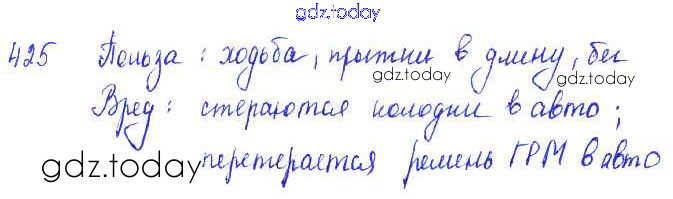 gdz.today
425 Польза: ходьба, прыжки в длину, бег
gdz.today
Вред: стераются колодки в авто;
gdz.today
перетерается ремень ГРМ в авто
gdz.today